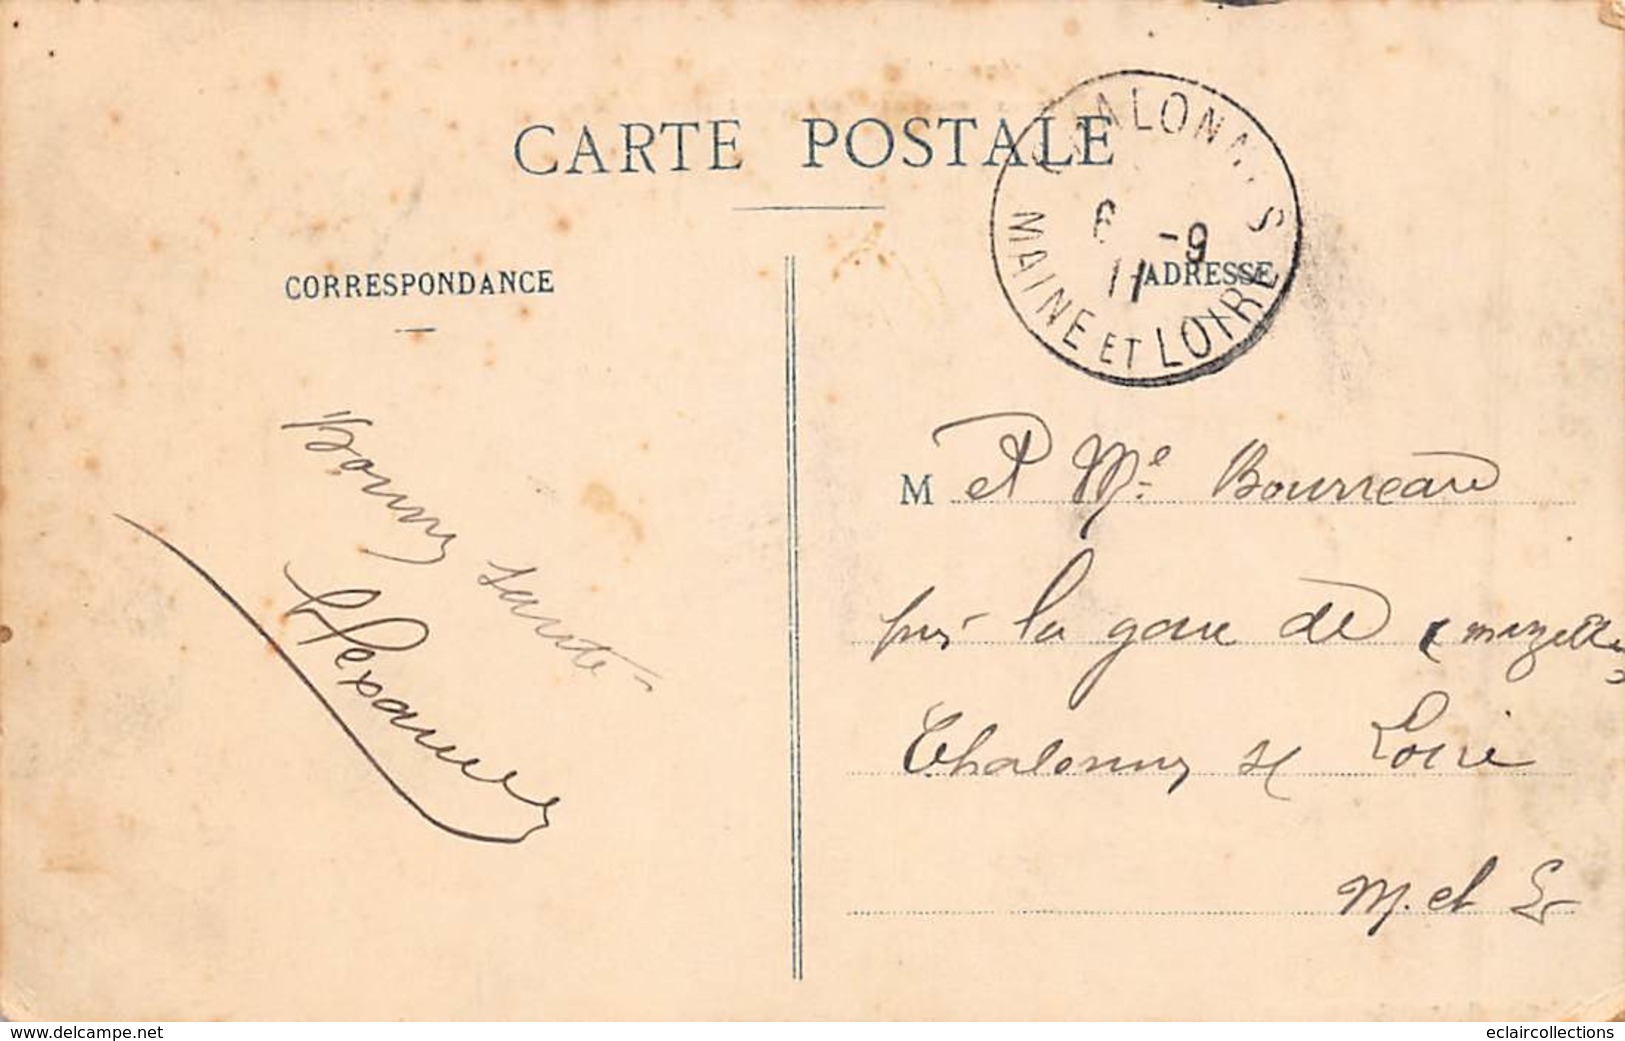 CARTE POSTALE
CHALONNES
6 -9
11
MAINE ET LOIRE
CORRESPONDANCE
ADRESSE
Bonne
santé
Alexandre
M et Mе Bourreau
près la gare de
Chalonnes s/ Loire
M. et L
www.delcampe.net
eclaircollections